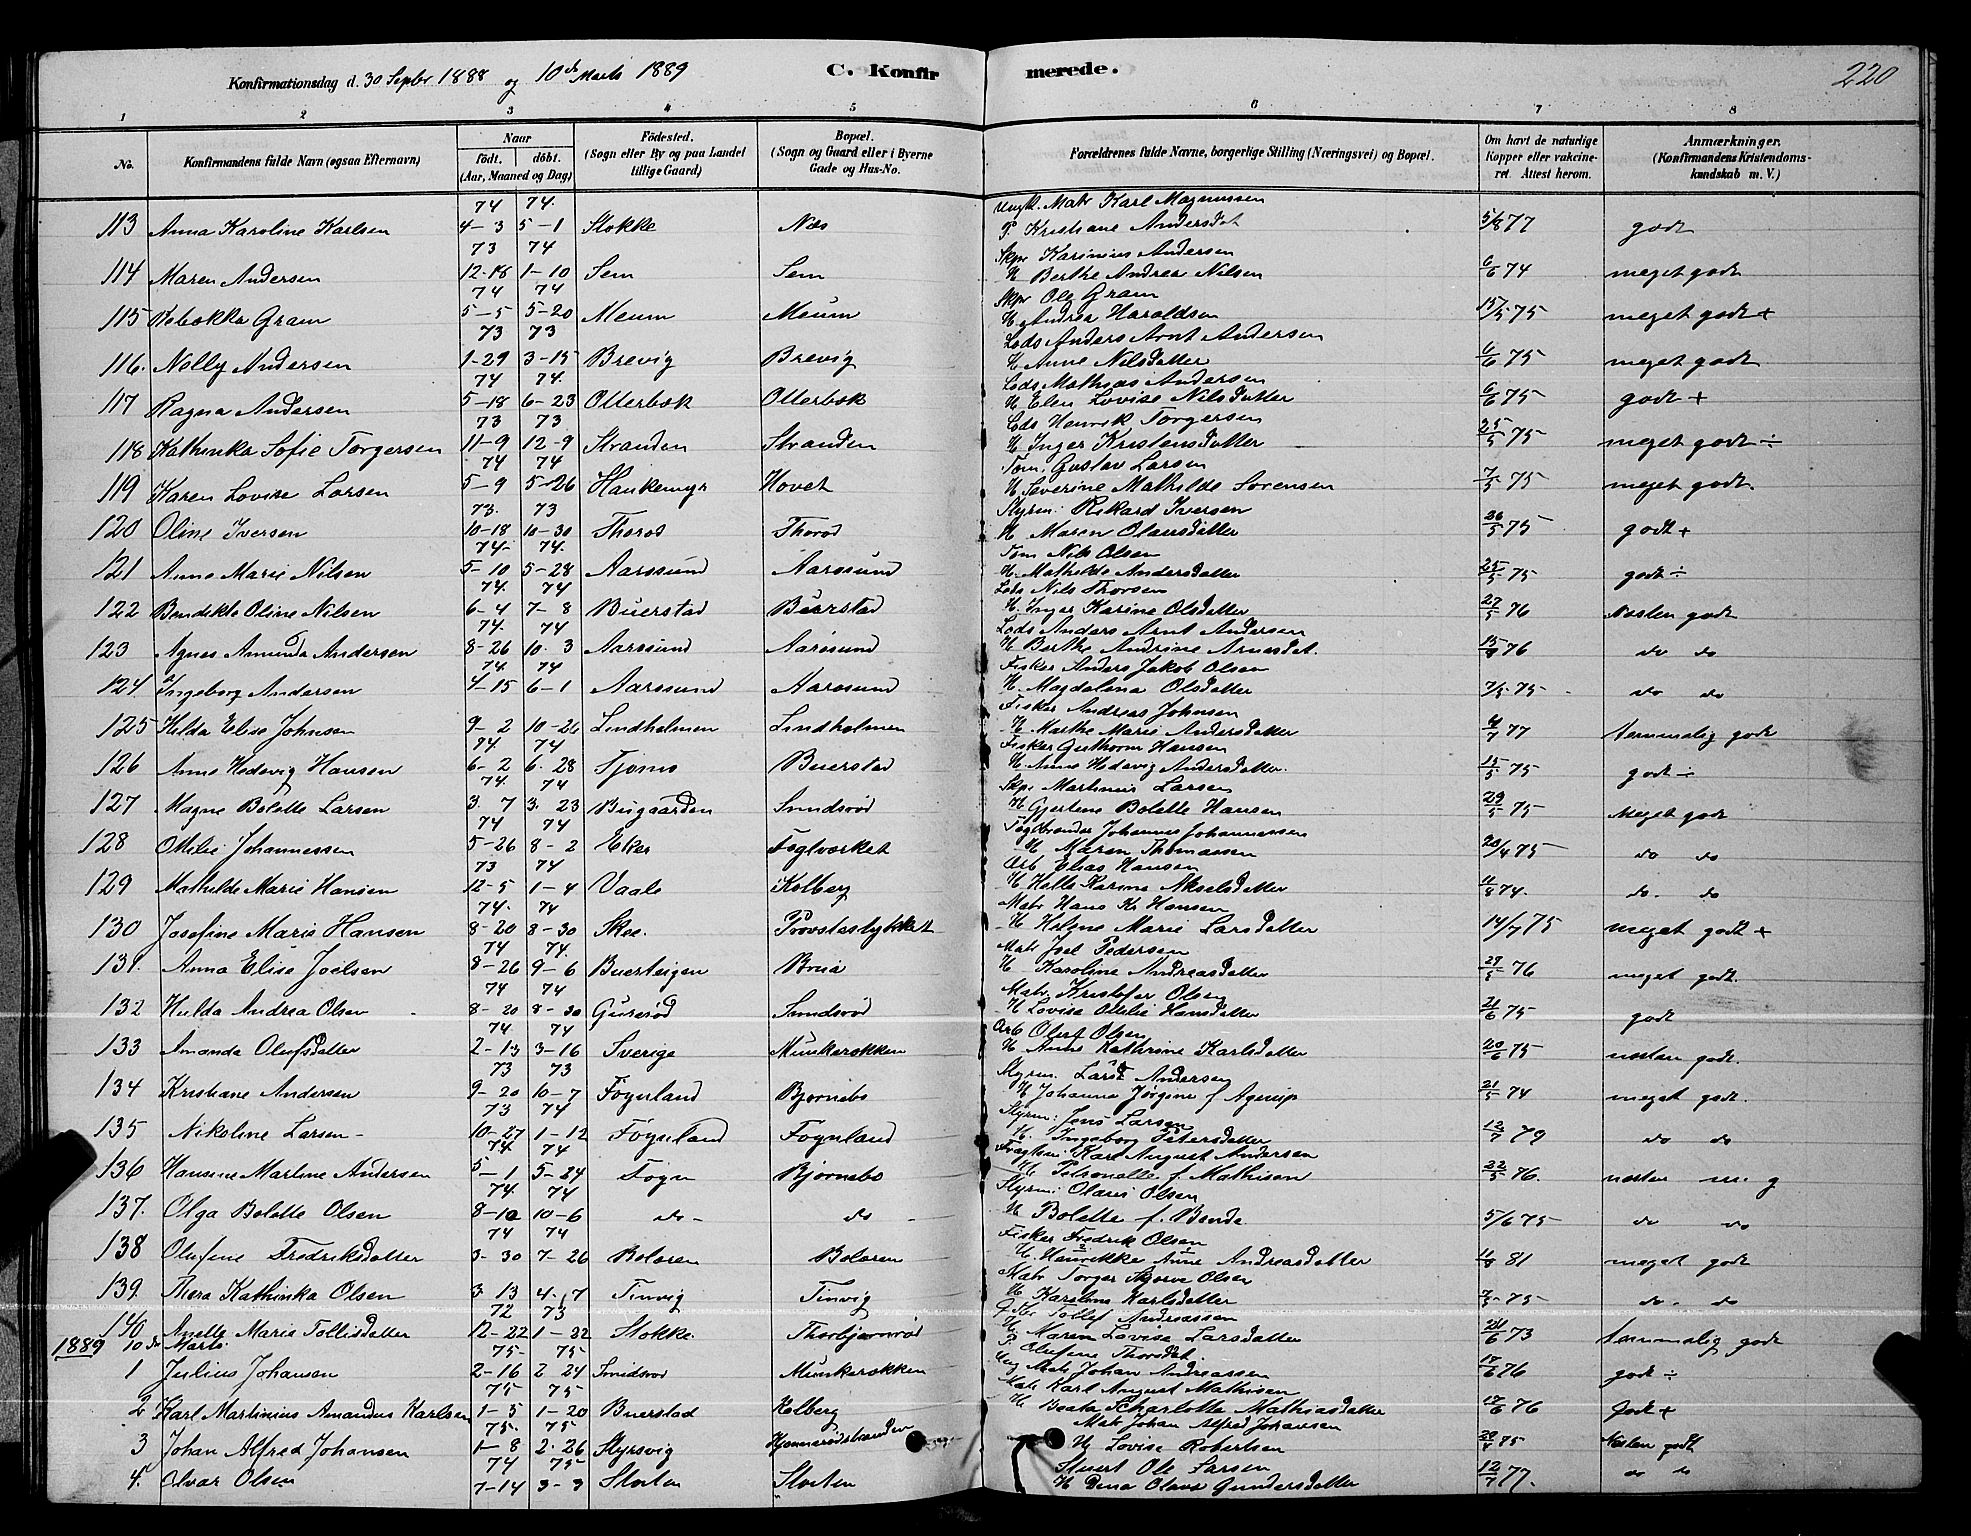 220
Konfirmationsdag d. 30 Septbr 1888 og 10de Marts 1889 C. Konfirmerede.
1 2 3 4 5 6 7 8
No. Konfirmandens fulde Navn (ogsaa Efternavn) Naar født. døbt. (Aar, Maaned og Dag) Fødested. (Sogn eller By og paa Landet tillige Gaard) Bopæl. (Sogn og Gaard eller i Byerne Gade og Hus-No. Forældrenes fulde Navne, borgerlige Stilling (Næringsvei) og Bopæl. Om havt de naturlige Kopper eller vakcineret. Attest herom. Anmærkninger. (Konfirmandens Kristendomskundskab m. V.)
74 74. Ungk. Matr Karl Magnussen
113 Anna Karoline Karlsen 4-3 5-1 Stokke Næs P. Kristiane Andersdat 5/8 77 godt
73 74 Skpr Karinius Andersen
114 Maren Andersen 12-18 1-10 Sem Sem H Berthe Andrea Nilsen 6/6 74 meget godt
74 74 Skpr Ole Gram
115 Rebekka Gram 5-5 5-20 Meum Meum H Andrea Haraldsen 15/5 75 meget godt +
73 73 Lods Anders Arnt Andersen
116. Nelly Andersen 1-29 3-15 Brevig Brevig H Anne Nilsdatter 6/6 75 meget godt
74 74. Lods Mathias Andersen
117 Ragna Andersen 5-18 6-23 Otterbæk Otterbæk H Elen Lovise Nilsdatter 6/6 75 godt +
73 73 Lods Henrik Torgersen
118 Kathinka Sofie Torgersen 11-9 12-9 Stranden Stranden H Inger Kristensdatter 25/5 75 meget godt ÷
74 74 Tøm. Gustav Larsen
119 Karen Lovise Larsen 5-9 5-26 Haukemyr Hovet H Severine Mathilde Sørensen 7/5 75 meget godt.
73. 73 Styrm: Rikard Iversen
120 Oline Iversen 10-18 10-30 Thorød Thorød H Maren Olausdatter 26/5 75 godt +
74- 74. Tøm Nils Olsen
121 Anne Marie Nilsen 5-10 5-28 Aarøsund Aarøsund H. Mathilde Andersdatter 25/5 75 godt ÷
74. 74 Lods Nils Thorsen
122 Bendikte Oline Nilsen 6-4 7-8 Buerstad Buerstad H. Inger Karine Olsdatter 27/5 76 Næsten godt
74. 74 Lods Anders Arnt Andersen
123 Agnes Amunda Andersen 8-26 10. 3 Aarøsund Aarøsund H Berthe Andrine Arnesdat. 15/9 76 do do
74 74 Fisker Anders Jakob Olsen
124 Ingeborg Andersen 4-15 6-1 Aarøsund Aarøsund H. Magdalena Olsdatter 7/5 75 do do
Fisker Andreas Johnsen
125 Hilda Elise Johnsen 9-2 10-26 Lindholmen Lindholmen H Marthe Marie Andersdatter 4/7 77 temmelig godt
74 74 Fisker Guthorm Hansen
126 Anne Hedevig Hansen 6-2 6. 28 Tjømø Buerstad H. Anne Hedevig Andersdatter. 15/5 75 godt ÷
74 74 Skpr Martinus Larsen
127 Magne Bolette Larsen 3. 7 3. 23 Bugaarden Smidsrød H Gjertine Bolette Hansen 29/5 75 Meget godt
74 74 Teglbrænder Johannes Johannessen
128 Otilie Johannessen 5-26 8-2 Eker Teglværket H Maren Thomassen 20/4 75 do do
73 74 Arb Elias Hansen
129 Mathilde Marie Hansen 12-5 1-4 Vaale Kolberg H Helle Karine Akselsdatter 11/8 74. do. do
74. 74 Matr Hans Kr Hansen
130 Josefine Marie Hansen 8-20 8-30 Skee. Provstestykket H Helene Marie Larsdatter 14/7 75 meget godt +
74 74. Matr Joel Pedersen
131. Anna Elise Joelsen 8-26 9-6 Buerteigen Brua H Karoline Andreasdatter 29/5 76 meget godt.
74 74 Matr. Kristofer Olsen
132 Hulda Andrea Olsen 8-20 8-30 Gurerød Smidsrød H Lovise Otilie Hansdatter 21/6 75 godt
74 74 Arb Oluf Olsen
133 Amanda Olufsdatter 2-13 3-16 Sverige Munkerekken H Anne Kathrine Karlsdatter 20/6 75 næsten godt.
73 73 Styrm. Lars Andersen
134 Kristiane Andersen 9-20 10-7 Føynland Bjørnebo H Johanne Jørgine f Agerup 21/5 74 meget godt.
73 74 Styrm: Jens Larsen
135 Nikoline Larsen 10-27 1-12 Føynland Føynland H. Ingeborg Petersdatter 12/7 79 do do
74. 74 Karl August Andersen
136 Hansine Martine Andersen 5-1 5-24 Føyn Bjørnebo H Petronelle f. Mathisen 22/5 76. næsten m. g
74. 74 Styrm: Olaus Olsen
137. Olga Bolette Olsen 8-10 10-6 do- do H Bolette f. Bende 5/6 75 do do
74 74 Fisker Fredrik Olsen
138 Olufine Fredriksdatter 3-30 7-26 Bolæren Bolæren H. Henrikke Anne Andreasdatter 11/8 81 meget godt
Matr Torger Olsen
139. Thora Kathinka Olsen 3 13 4. 17 Tinvig Tinvig H Karoline Karlsdatter 75 do. do
72 73 Tollef Andreassen
140 Anette Marie Tollisdatter 12-22 1-22 Stokke. Thorbjørnrød H Maren Lovise Larsdatter 21/6 73 temmelig godt
1889 10de Marts. 75- 75 P Olufine Thorsdat
1 Julius Johansen 2-16 2 24 Smidsrød Munkerekken Ung Matr Johan Andreassen 17/6 76 godt ÷
75 75 Matr Karl August Mathisen
2 Karl Martinius Amandus Karlsen 1-5 1-20 Buerstad Kolberg H Beate Scharlotte Mathiasdatter 17/6 76 Godt +
75. 75 Matr Johan Alfred Johansen
3 Johan Alfred Johansen 1-8 2. 26 Styrsvig Hjemmerødstranden H Lovise Robertsen 20/4 85 Næsten godt
74 75 Stuert Ole Larsen
4. Olvar Olsen 7-14 3-3 Storten Storten H Dina Olava Gundersdatter 12/7 77. do do